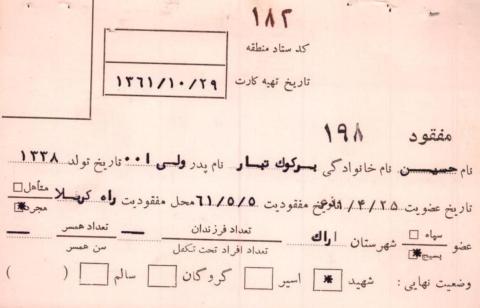 ۱۸۲
کد ستاد منطقه
تاریخ تهیه کارت ۱۳۶۱/۱۰/۲۹
مفقود ۱۹۸
نام حسین نام خانوادگی برکوک تبار نام پدر ولی ا۰۰ تاریخ تولد ۱۳۳۸
تاریخ عضویت ۱/۴/۲۵ تاریخ مفقودیت ۶۱/۵/۵ محل مفقودیت راه کربلا متأهل مجرد
عضو سپاه بسیج شهرستان اراک تعداد فرزندان — تعداد همسر —
تعداد افراد تحت تکفل سن همسر
وضعیت نهایی: شهید اسیر گروگان سالم ( )